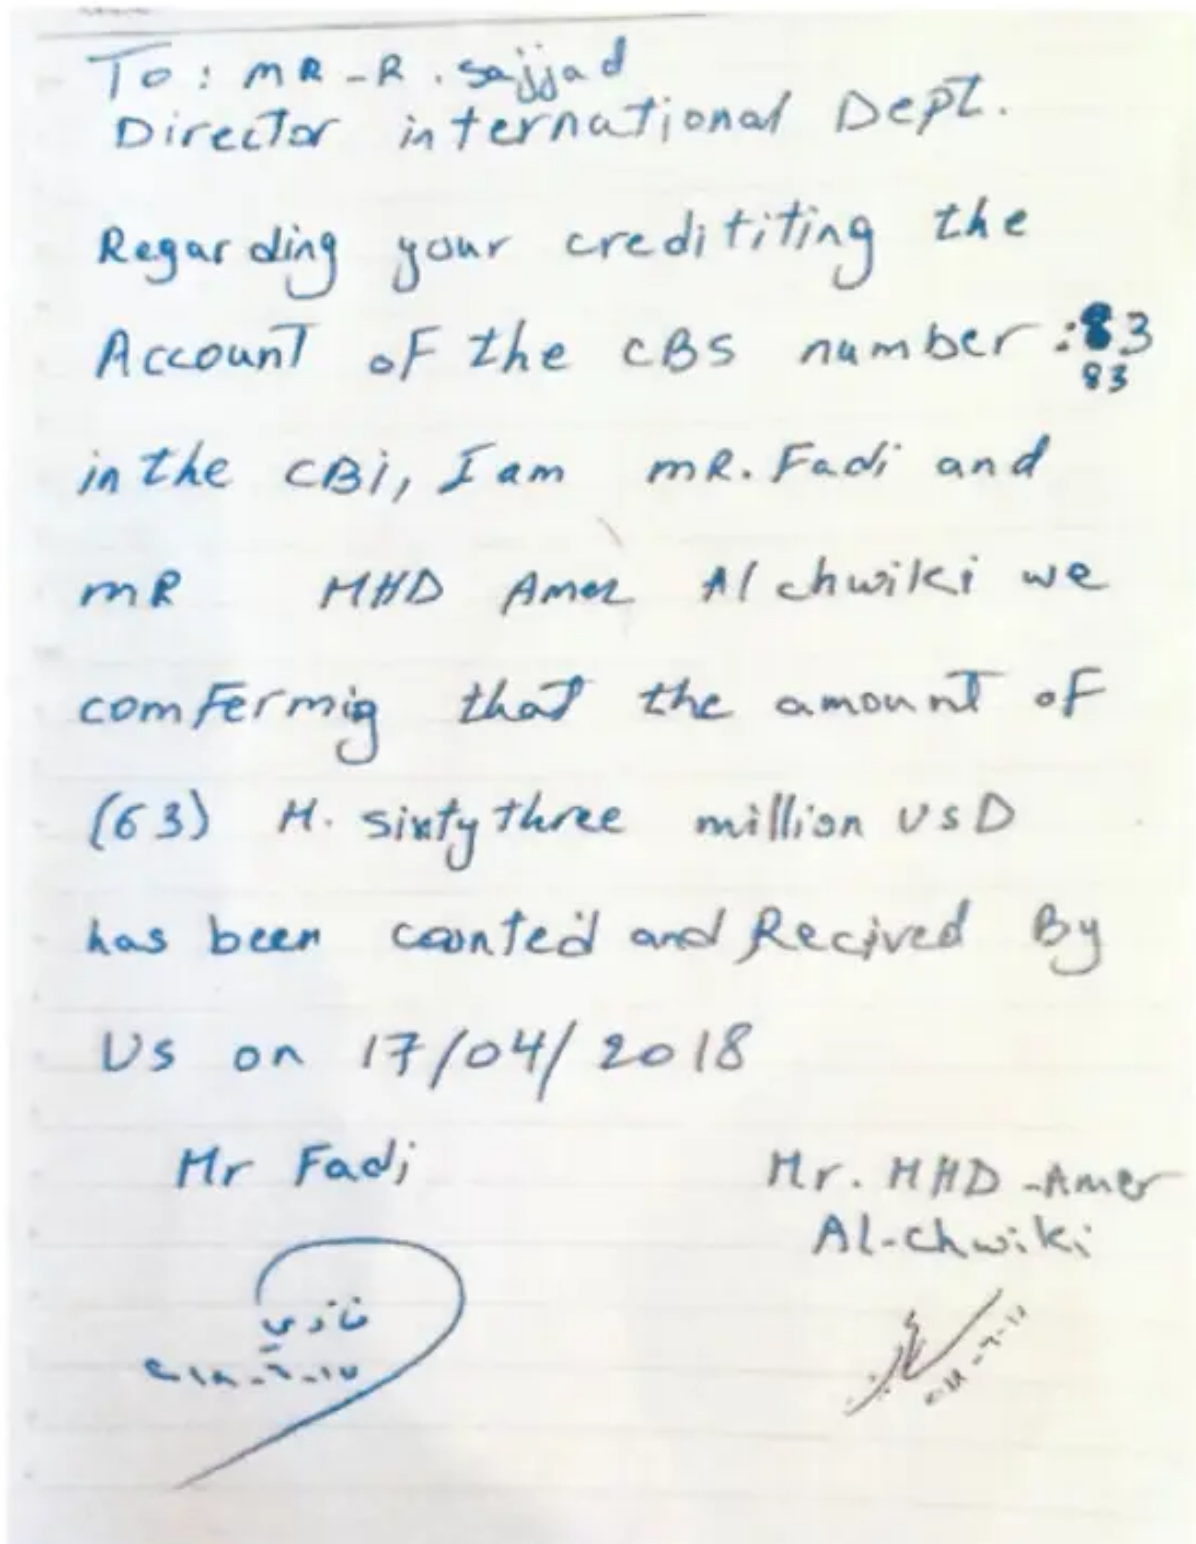 To: MR-R. Sajjad
Director international Dept.
Regarding your credititing the
Account of the CBS number: 83
83
in the CBi, I am mR. Fadi and
mR MHD Amer Al chwiki we
comfermig that the amount of
(63) M. sixty three million USD
has been counted and Recived By
Us on 17/04/2018
Mr Fadi
Mr. MHD -Amer
Al-chwiki